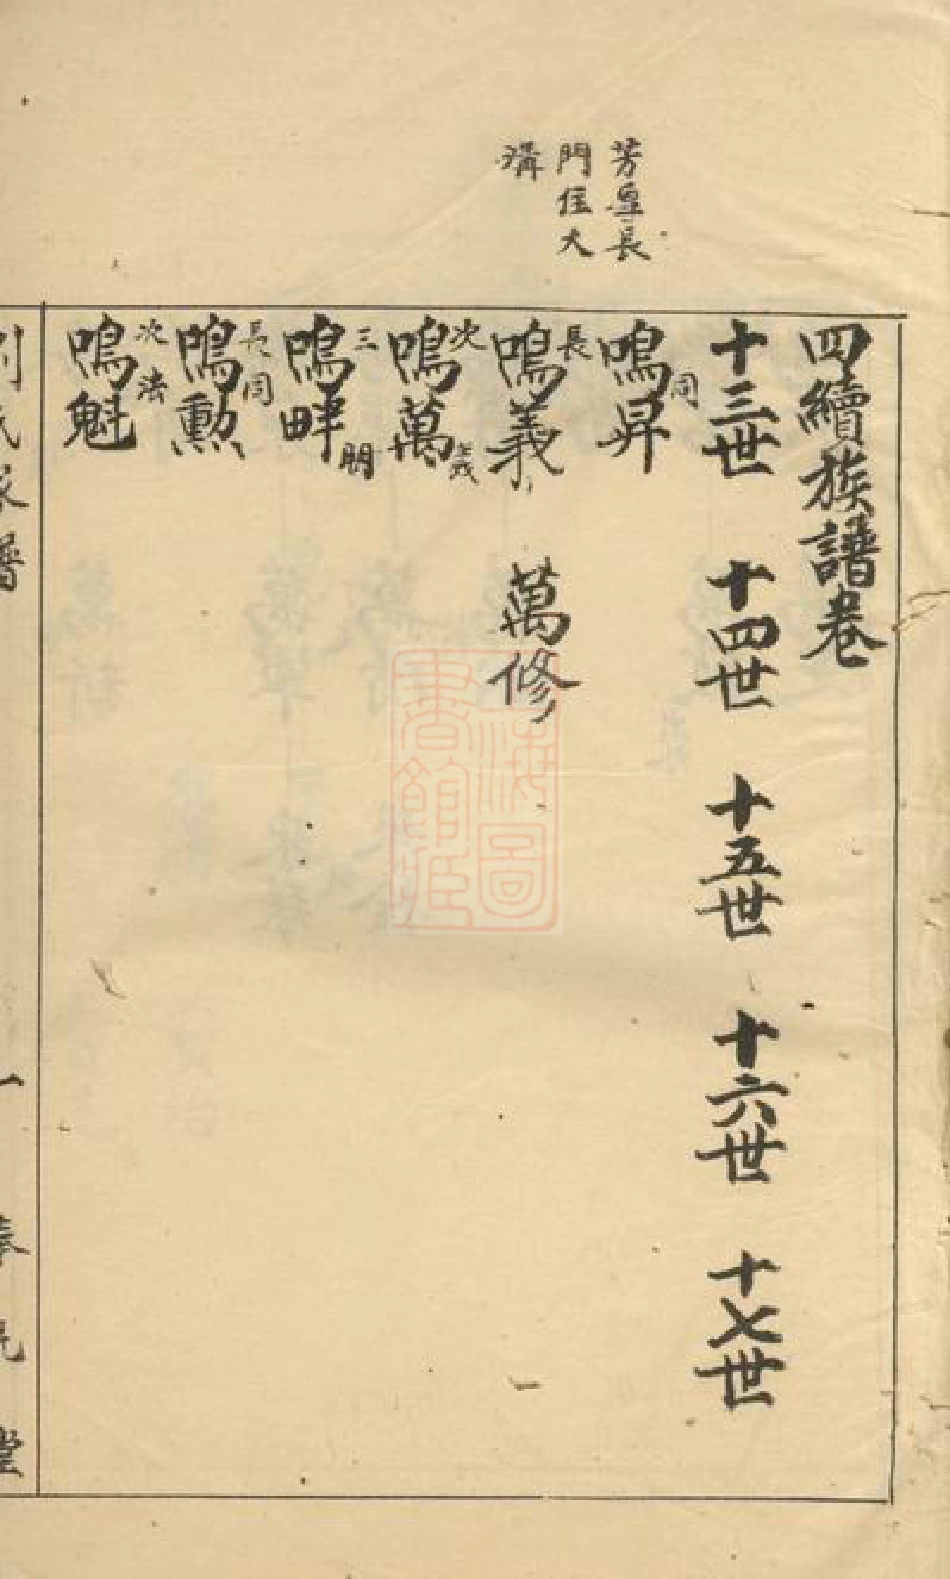 芳皐長
門住大
溝
四續族譜卷
十三世 十四世 十五世 十六世 十七世
同
鳴昇
長
鳴義 萬修
次 義
鳴萬
三 朋
鳴畔
長同
鳴勲
次法
鳴魁
氏家譜 一 堂